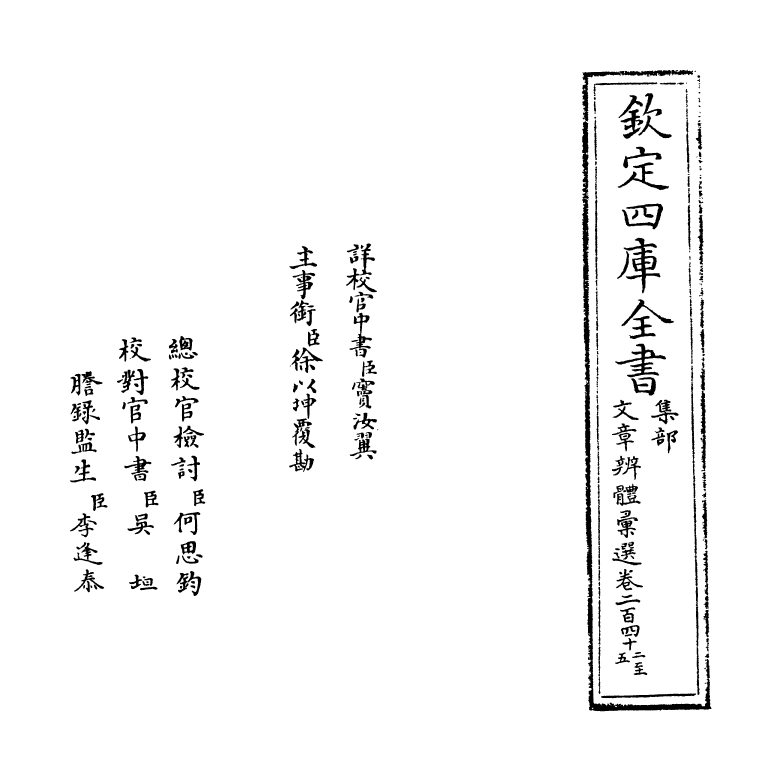 欽定四庫全書
集部
文章辨體彙選卷二百四十二至五
詳校官中書臣竇汝翼
主事銜臣徐以坤覆勘
總校官檢討臣何思鈞
校對官中書臣吳垣
謄錄監生臣李逢泰